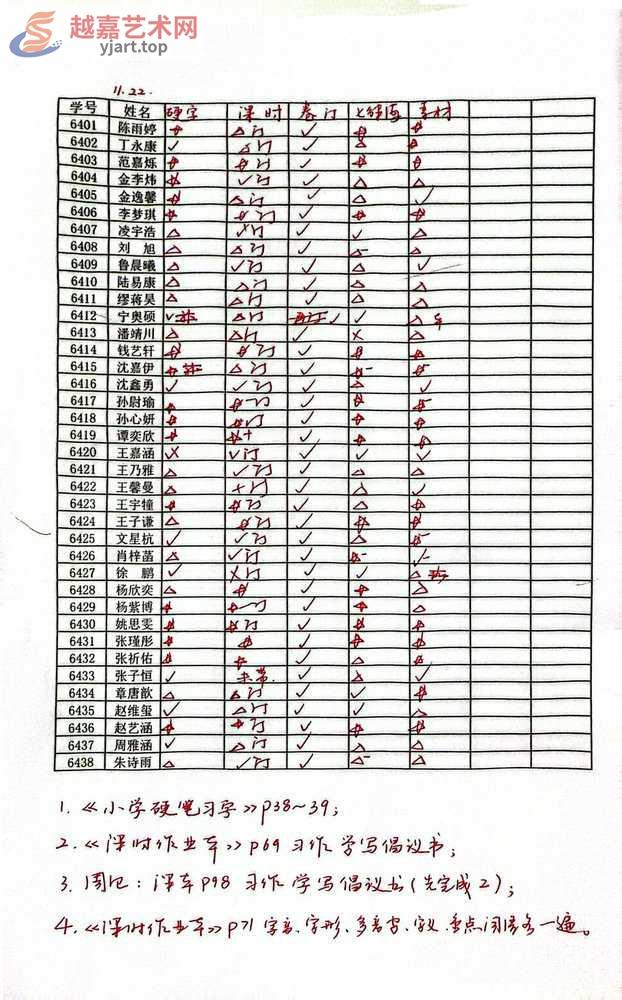 越嘉艺术网
yjart.top
11.22.
学号 姓名 硬字 课时 卷门 素材
6401 陈雨婷
6402 丁永康
6403 范嘉烁
6404 金李炜
6405 金逸馨
6406 李梦琪
6407 凌宇浩
6408 刘旭
6409 鲁晨曦
6410 陆易康
6411 缪蒋昊
6412 宁奥硕
6413 潘靖川
6414 钱艺轩
6415 沈嘉伊
6416 沈鑫勇
6417 孙尉瑜
6418 孙心妍
6419 谭奕欣
6420 王嘉涵
6421 王乃雅
6422 王馨曼
6423 王宇犝
6424 王子谦
6425 文星杭
6426 肖梓菡
6427 徐鹏
6428 杨欣奕
6429 杨紫博
6430 姚思雯
6431 张瑾彤
6432 张祈佑
6433 张子恒 未带.
6434 章唐歆
6435 赵维玺
6436 赵艺涵
6437 周雅涵
6438 朱诗雨
1.《小学硬笔习字》p38~39;
2.《课时作业本》p69 习作 学写倡议书;
3. 周记: 课本p98 习作 学写倡议书(先完成2);
4.《课时作业本》p71 字音、字形、多音字、字义、重点词语各一遍。